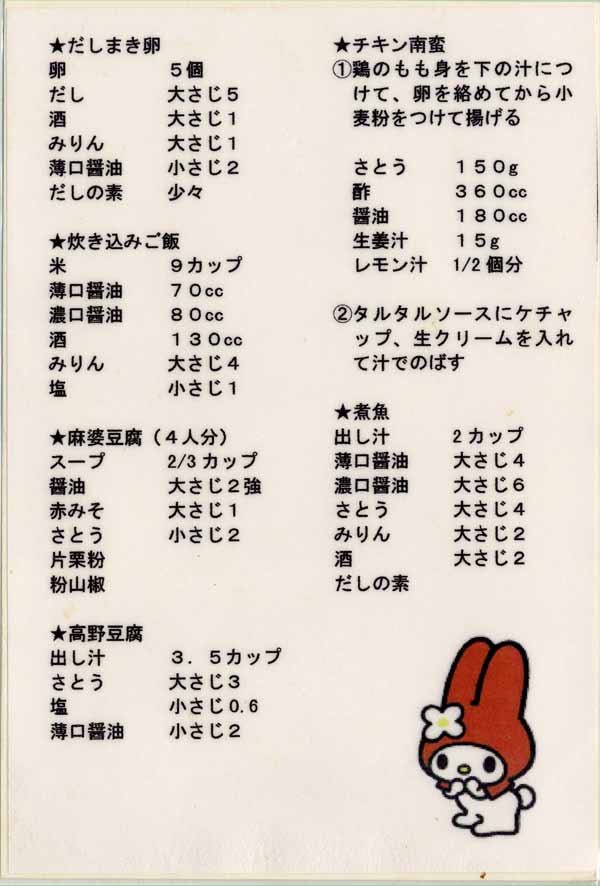 ★だしまき卵
卵　５個
だし　大さじ５
酒　大さじ１
みりん　大さじ１
薄口醤油　小さじ２
だしの素　少々
★炊き込みご飯
米　９カップ
薄口醤油　７０cc
濃口醤油　８０cc
酒　１３０cc
みりん　大さじ４
塩　小さじ１
★麻婆豆腐（４人分）
スープ　2/3カップ
醤油　大さじ２強
赤みそ　大さじ１
さとう　小さじ２
片栗粉
粉山椒
★高野豆腐
出し汁　３．５カップ
さとう　大さじ３
塩　小さじ0.6
薄口醤油　小さじ２
★チキン南蛮
①鶏のもも身を下の汁につ
けて、卵を絡めてから小
麦粉をつけて揚げる
さとう　１５０g
酢　３６０cc
醤油　１８０cc
生姜汁　１５g
レモン汁　1/2個分
②タルタルソースにケチャ
ップ、生クリームを入れ
て汁でのばす
★煮魚
出し汁　２カップ
薄口醤油　大さじ４
濃口醤油　大さじ６
さとう　大さじ４
みりん　大さじ２
酒　大さじ２
だしの素